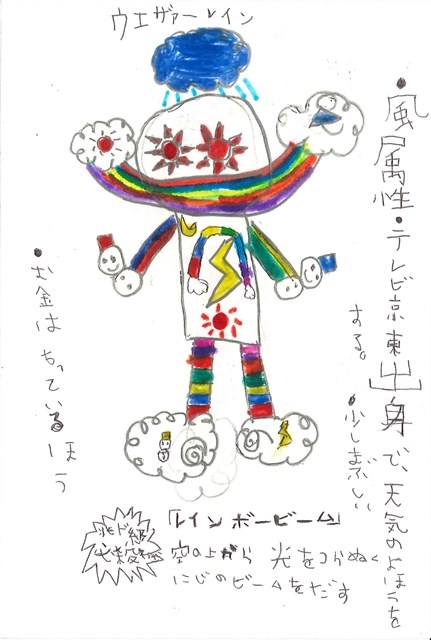 ウエザァーレイン
・風属性・テレビ京東出身で、天気のよほうを
する。
・少しまぶしい
・お金はもっているほう
「レインボービーム」
ド級
必殺
空の上から 光をつらぬく
にじのビームをだす